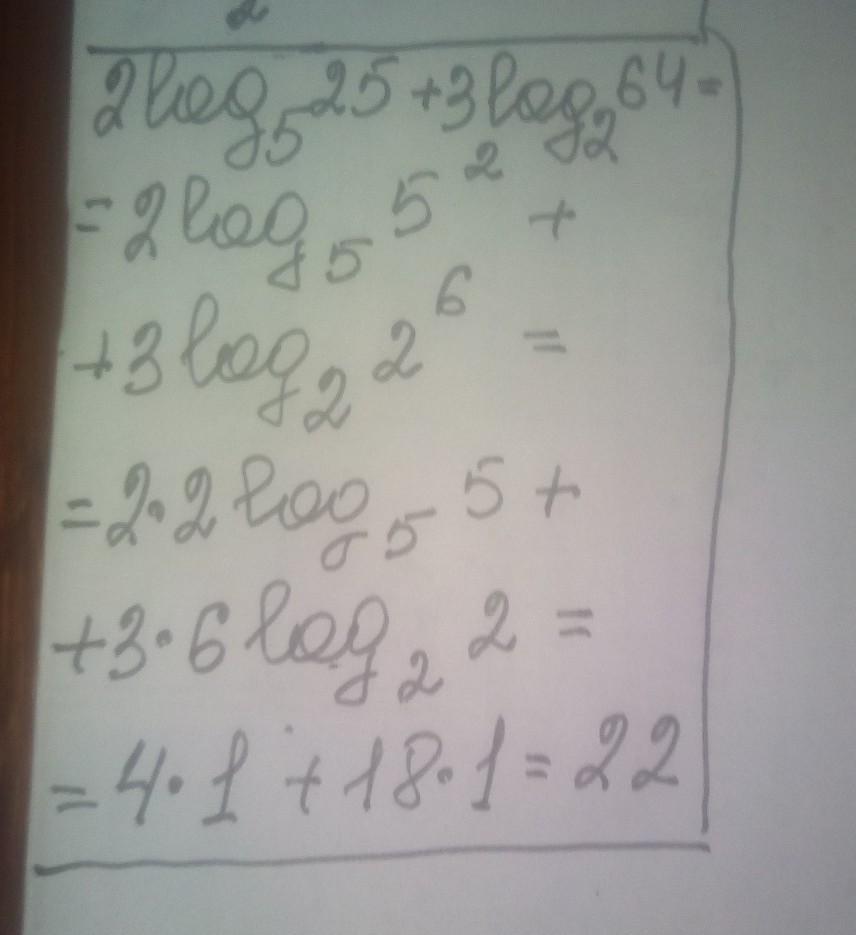 2
2log₅25+3log₂64=
=2log₅5² +
+3log₂2⁶ =
=2·2log₅5+
+3·6log₂2=
=4·1+18·1=22